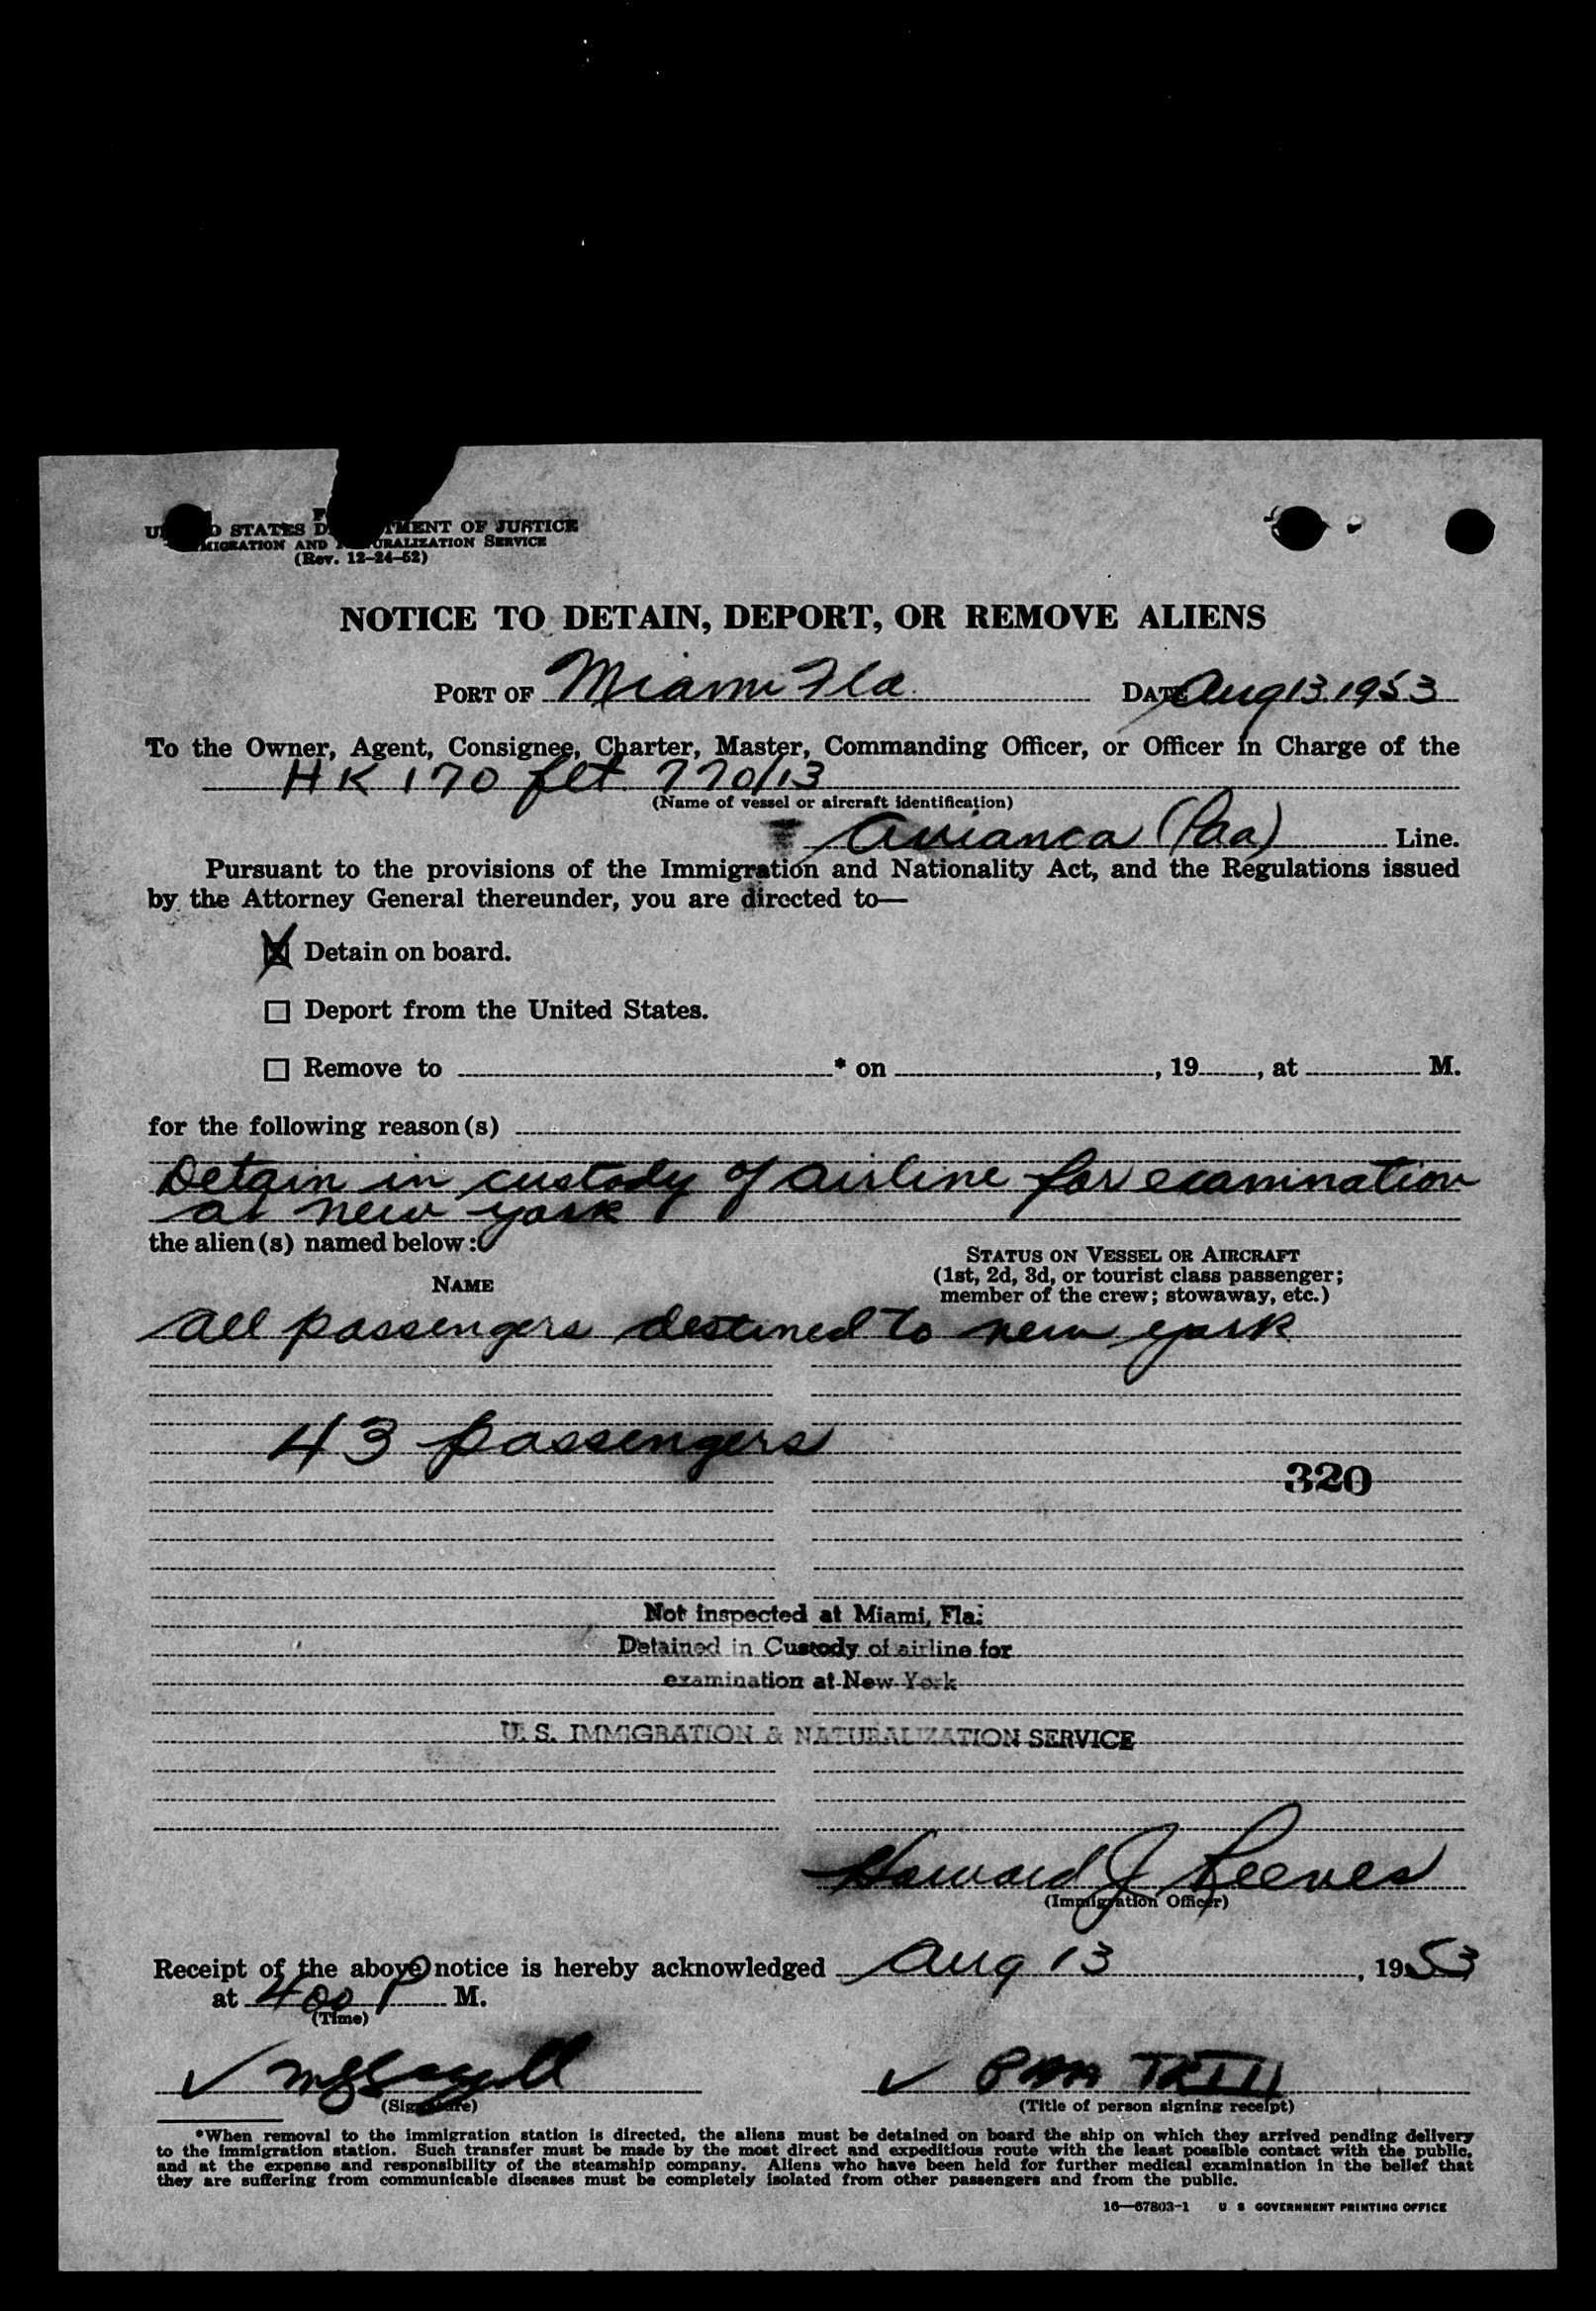 STATES D TMENT OF JUSTICE
MIGRATION AND URALIZATION SERVICE
(Rev. 12-24-52)
NOTICE TO DETAIN, DEPORT, OR REMOVE ALIENS
PORT OF Miami Fla. DATE Aug 13 1953
To the Owner, Agent, Consignee, Charter, Master, Commanding Officer, or Officer in Charge of the
HK 170 flt. 770/13
(Name of vessel or aircraft identification)
Avianca (Paa) Line.
Pursuant to the provisions of the Immigration and Nationality Act, and the Regulations issued
by the Attorney General thereunder, you are directed to—
☒ Detain on board.
☐ Deport from the United States.
☐ Remove to * on , 19 , at M.
for the following reason(s)
Detain in custody of airline for examination
at New York
the alien(s) named below:
NAME
STATUS ON VESSEL OR AIRCRAFT
(1st, 2d, 3d, or tourist class passenger;
member of the crew; stowaway, etc.)
All passengers destined to new york
43 passengers
320
Not inspected at Miami, Fla.
Detained in Custody of airline for
examination at New York
U. S. IMMIGRATION & NATURALIZATION SERVICE
Howard J Reeves
(Immigration Officer)
Receipt of the above notice is hereby acknowledged Aug 13, 1953
at 400 P M.
(Time)
✓ PAA
(Signature)
(Title of person signing receipt)
*When removal to the immigration station is directed, the aliens must be detained on board the ship on which they arrived pending delivery
to the immigration station. Such transfer must be made by the most direct and expeditious route with the least possible contact with the public,
and at the expense and responsibility of the steamship company. Aliens who have been held for further medical examination in the belief that
they are suffering from communicable diseases must be completely isolated from other passengers and from the public.
16—67803-1 U S GOVERNMENT PRINTING OFFICE